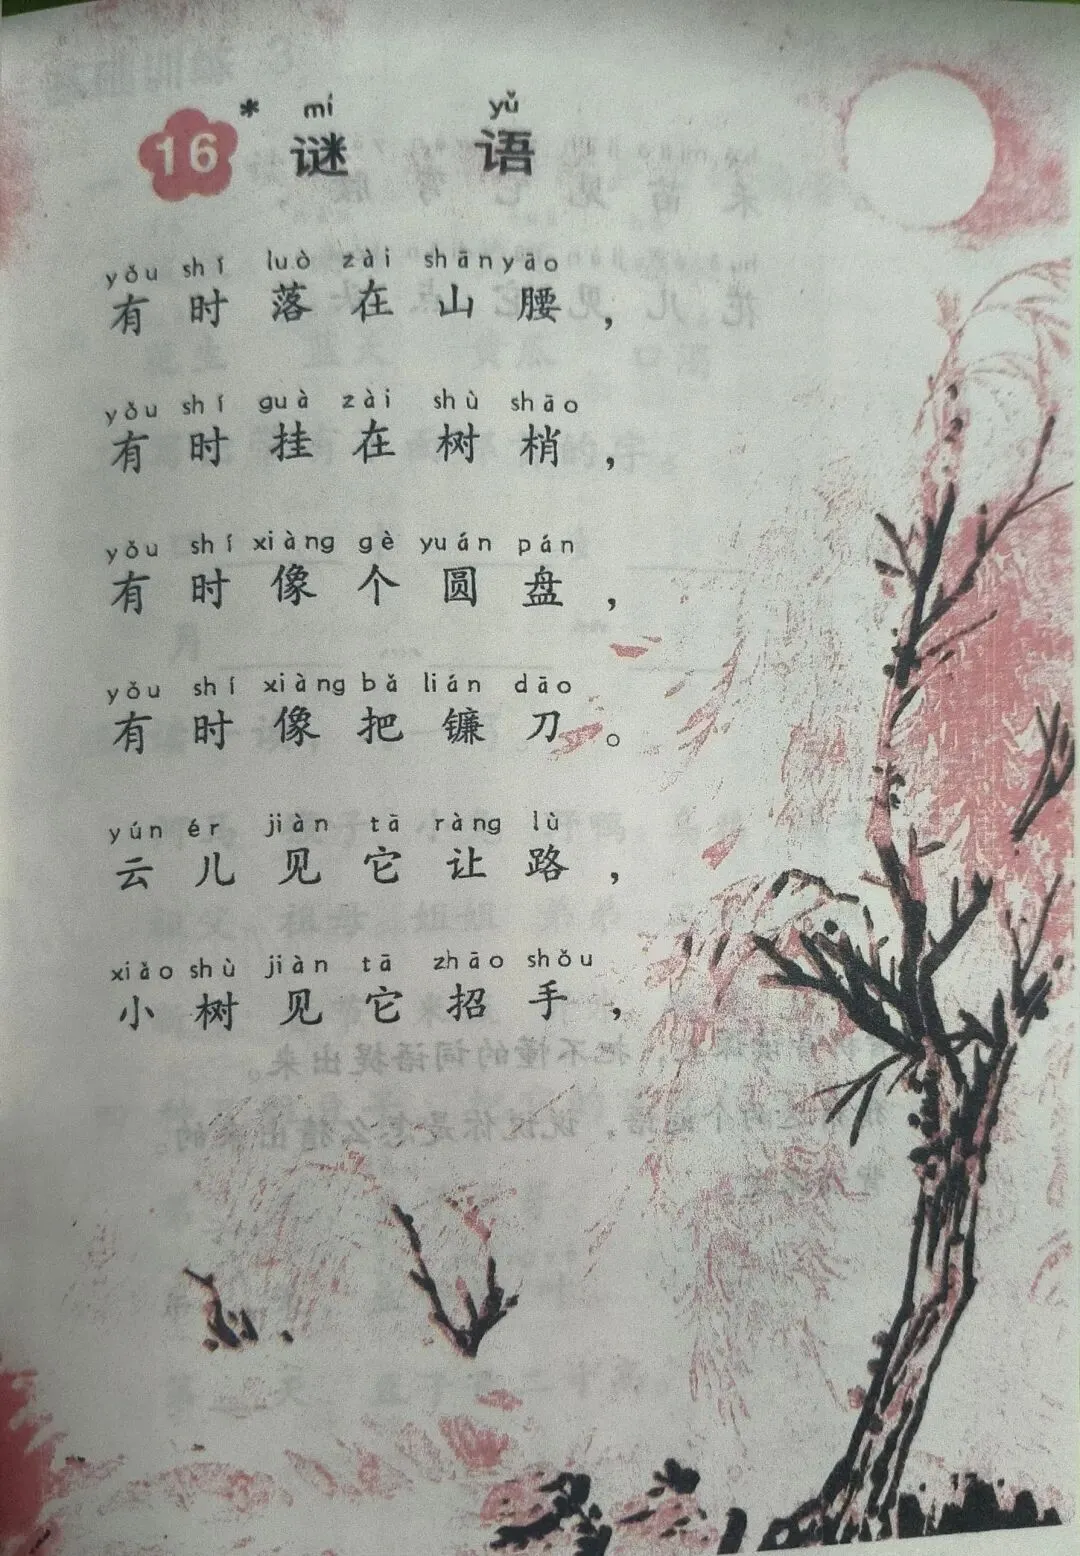 16 * mí yǔ
谜语
yǒu shí luò zài shānyāo
有时落在山腰，
yǒu shí guà zài shù shāo
有时挂在树梢，
yǒu shí xiàng gè yuán pán
有时像个圆盘，
yǒu shí xiàng bǎ lián dāo
有时像把镰刀。
yún ér jiàn tā ràng lù
云儿见它让路，
xiǎo shù jiàn tā zhāo shǒu
小树见它招手，